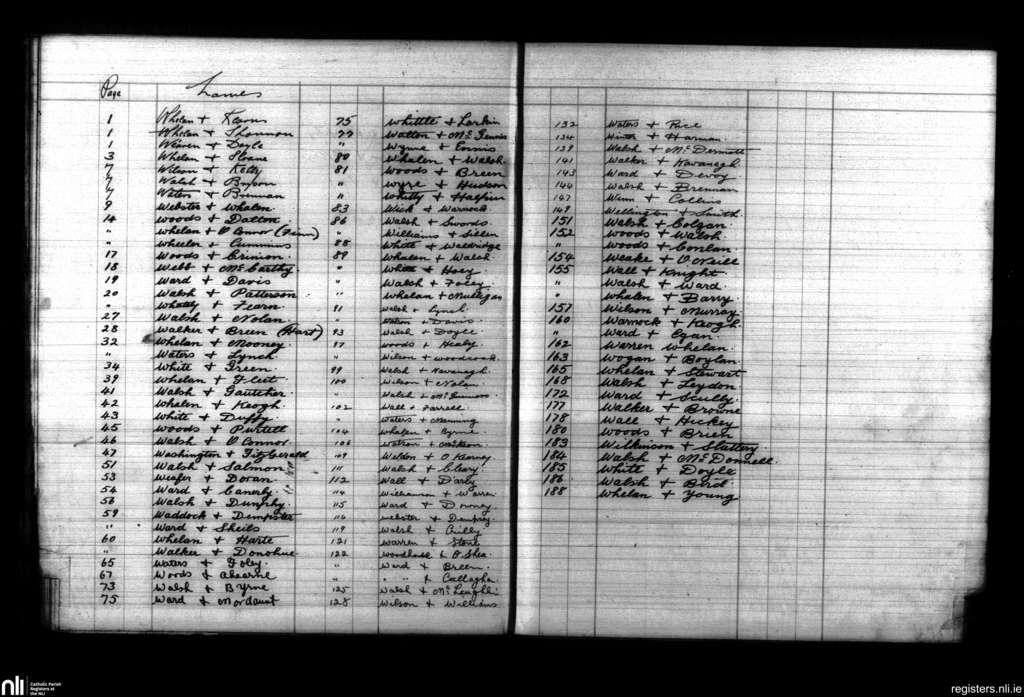 Page Names
1 Whelan + Kearns
1 Whelan + Shannon
1 Weaven + Doyle
3 Whelan + Sloane
7 Wilson + Kelly
7 Walsh + Byrom
7 Waters + Brennan
9 Webster + Whelan
14 Woods + Dalton
" Whelan + O'Connor (Finn)
" Wheeler + Cummins
17 Woods + Crinion
18 Webb + McCarthy
19 Ward + Davis
20 Walsh + Patterson
" Whitty + Fearn
27 Walsh + Nolan
28 Walker + Breen (Hart)
32 Whelan + Mooney
" Waters + Lynch
34 White + Green
39 Whelan + Fleet
41 Walsh + Gautcher
42 Whelan + Keogh
43 White + Duffy
45 Woods + Purtell
46 Walsh + O'Connor
47 Washington + Fitzgerald
51 Walsh + Salmon
53 Weafer + Doran
54 Ward + Canerly
56 Walsh + Dunphy
59 Waddock + Dempster
" Ward + Sheils
60 Whelan + Harte
" Walker + Donohue
65 Waters + Foley
67 Woods + Ahearne
73 Walsh + Byrne
75 Ward + Mordaunt
75 Whittle + Larkin
77 Walton + McGennis
" Wynne + Ennis
80 Whelan + Walsh
81 Woods + Breen
" Wyre + Hudson
" Whitty + Halpin
83 Wick + Warnock
86 Walsh + Swords
" Williams + Sillen
88 White + Waldridge
89 Whelan + Walsh
" White + Hoey
" Walsh + Foley
" Whelan + Mulligan
91 Walsh + Lynch
" Watson + Davis
93 Walsh + Doyle
97 Woods + Healy
" Wilson + Woodcock
99 Walsh + Kavanagh
100 Wilson + Nolan
" Walsh + McGuinness
102 Wall + Farrell
" Waters + Manning
104 Whelan + Byrne
106 Watson +
109 Weldon + O'Kearney
111 Walsh + Cleary
112 Wall + Darly
114 Williamson + Warren
115 Ward + Downey
116 Webster + Dempsey
119 Walsh + Reilly
121 Warren + Stone
122 Woodhall + O'Shea
" Ward + Breen
" " + Callaghan
125 Walsh + McLoughlin
128 Wilson + Williams
132 Waters + Rice
134 Winter + Harman
139 Walsh + McDermott
141 Walker + Kavanagh
143 Ward + Devoy
144 Walsh + Brennan
147 Winn + Collins
149 Wellington + Smith
151 Walsh + Colgan
152 Woods + Walsh
" Woods + Conlan
154 Weake + O'Neill
155 Wall + Knight
" Walsh + Ward
" Whelan + Barry
157 Wilson + Murray
160 Warnock + Keogh
" Ward + Egan
162 Warren Whelan
163 Wogan + Boylan
165 Whelan + Stewart
168 Walsh + Leydon
172 Ward + Scully
177 Walker + Browne
178 Wall + Hickey
180 Woods + Brien
183 Wilkinson + Slattery
184 Walsh + McDonnell
185 White + Doyle
186 Walsh + Bird
188 Whelan + Young
nli Catholic Parish Registers at the NLI
registers.nli.ie